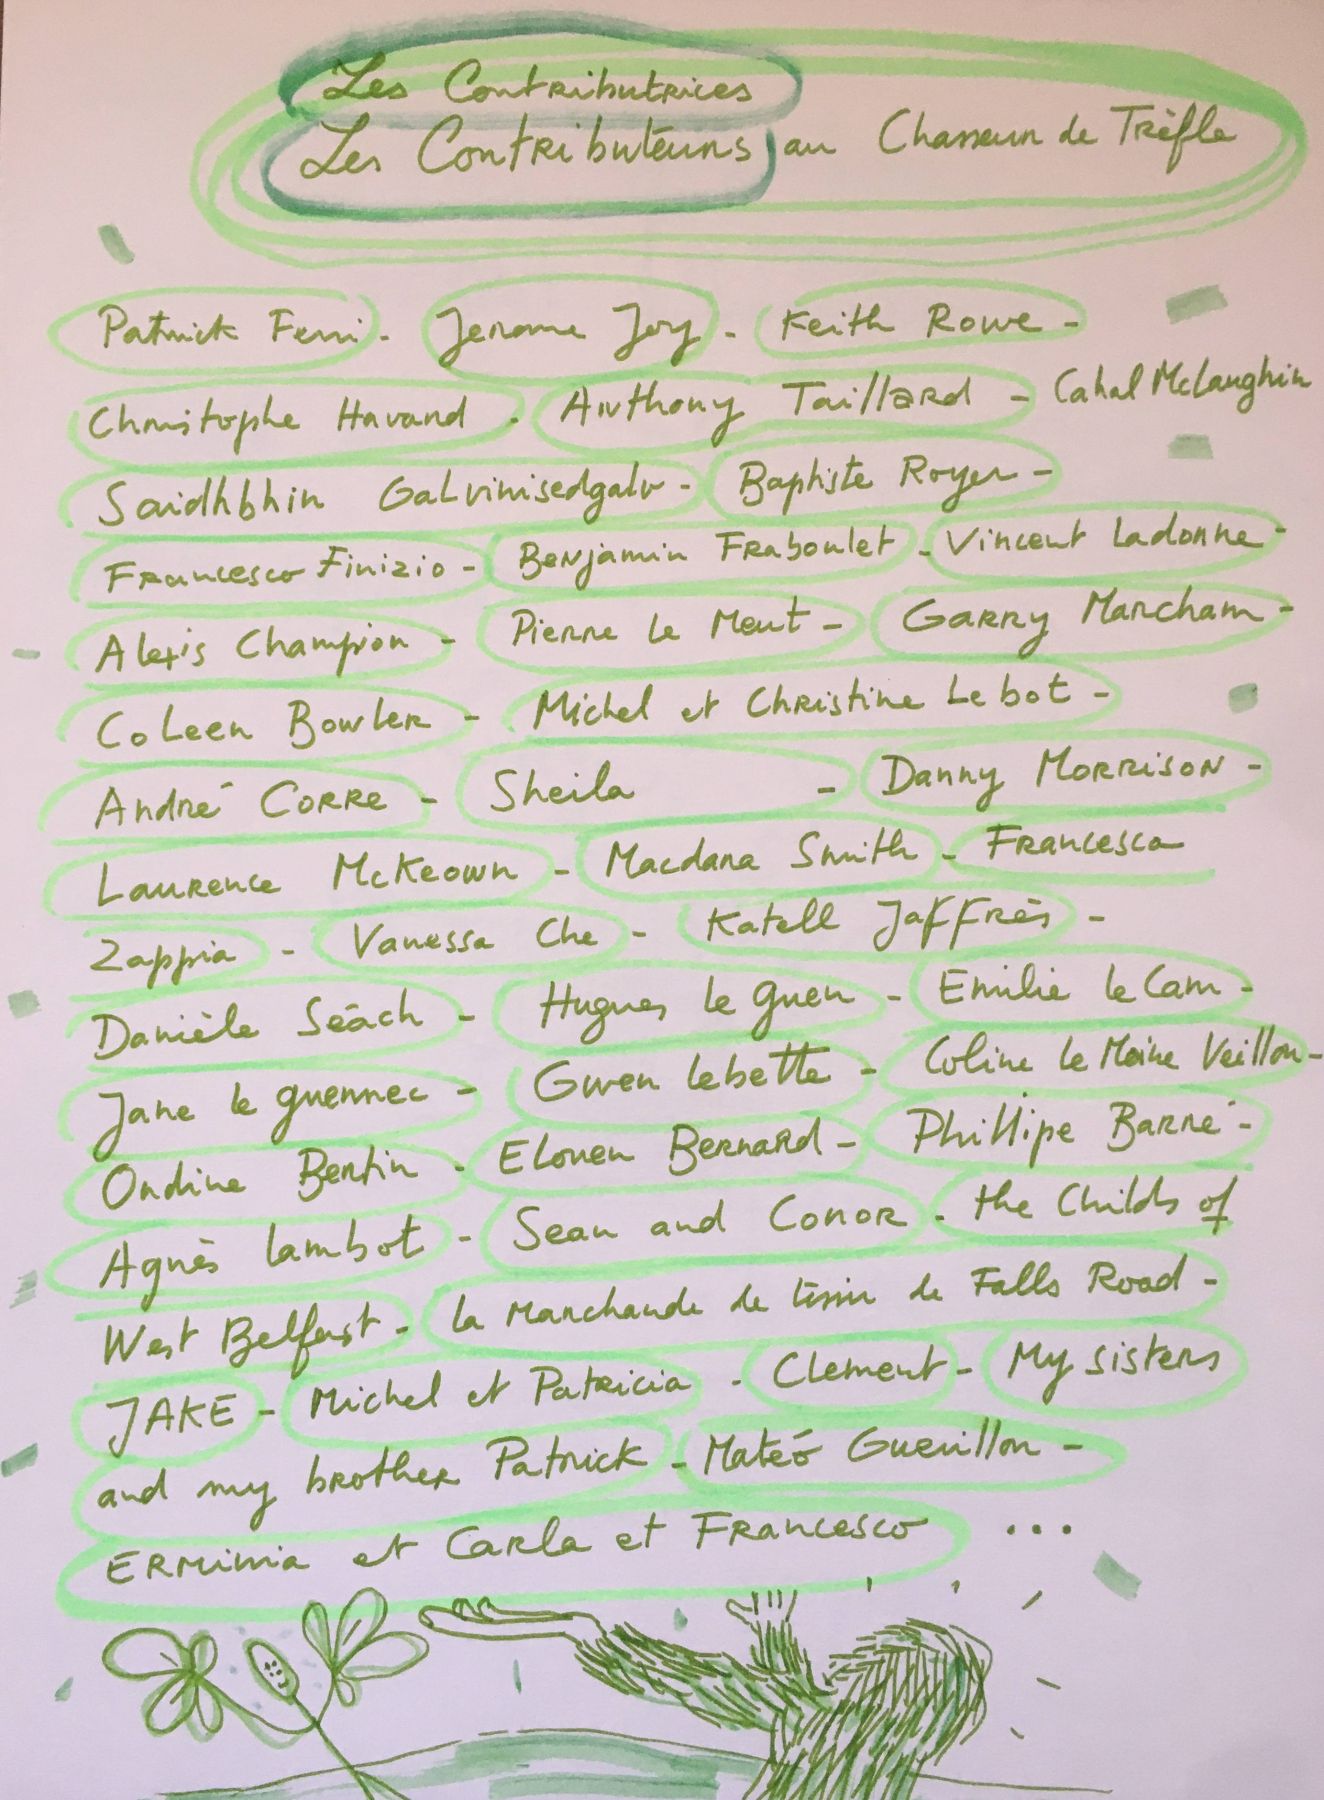 Les Contributrices
Les Contributeurs au Chasseur de Trèfle
Patrick Ferri - Jerome Joy - Keith Rowe -
Christophe Havard - Anthony Taillard - Cahal McLaughin
Saidhbhin Galvinisedgalv - Baptiste Royer -
Francesco Finizio - Benjamin Fraboulet - Vincent Ladonne -
Alexis Champion - Pierre Le Meut - Garry Marcham -
Coleen Bowler - Michel et Christine Lebot -
André Corre - Sheila - Danny Morrison -
Laurence McKeown - Macdara Smith - Francesca
Zappia - Vanessa Che - Katell Jaffrès -
Danièle Séach - Hugues le guen - Emilie le Cam -
Jane le guennec - Gwen lebette - Coline le Moine Veillon -
Ondine Bertin - Elouen Bernard - Phillipe Barré -
Agnès lambot - Sean and Conor - the Childs of
West Belfast - la marchande de tissu de Falls Road -
JAKE - Michel et Patricia - Clement - My sisters
and my brother Patrick - Mateó Guerillon -
Erminia et Carla et Francesco ...